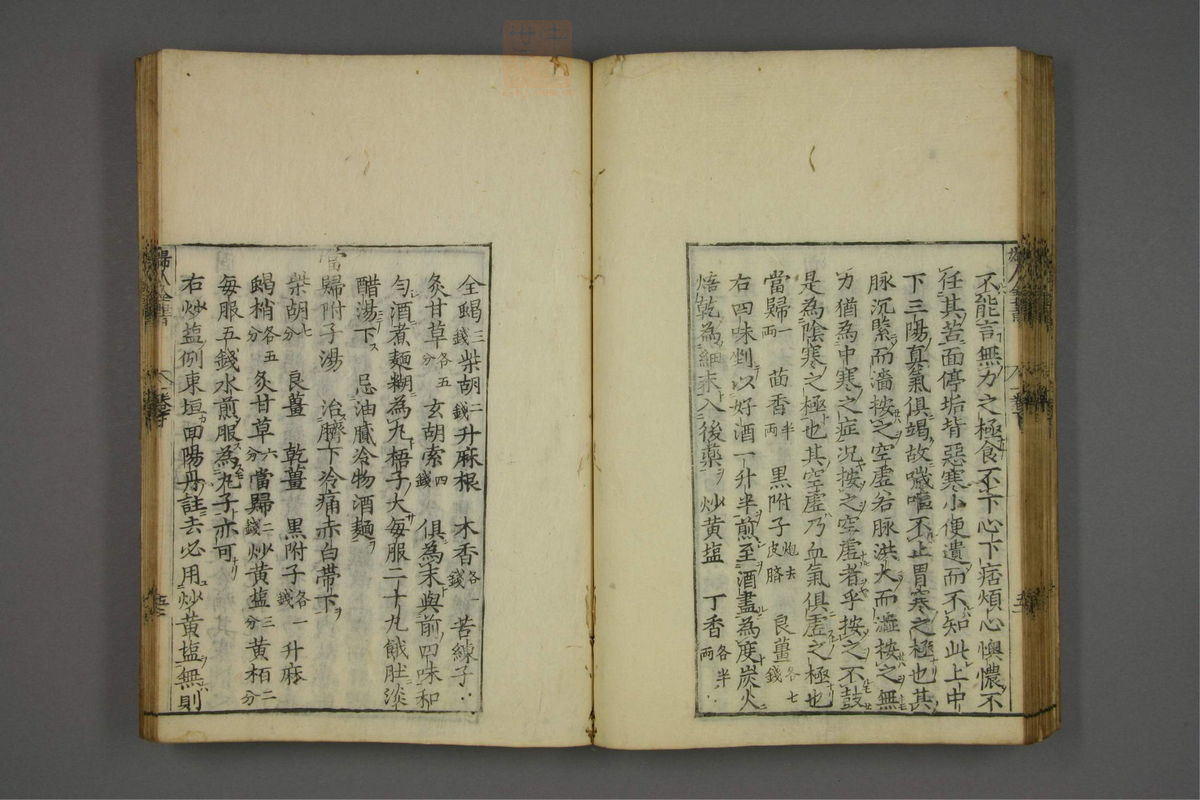 不能言無力之極食不下心下痞煩心懊憹不
任其苦面停垢背惡寒小便遺而不知此上中
下三陽真氣俱竭故噦嘔不止胃寒之極也其
脉沉緊而濇按之空虛若脉洪大而濇按之無
力猶為中寒之症况按之空虛者乎按之不鼓
是為陰寒之極也其空虛乃血氣俱虛之極也
當歸一兩 茴香半兩 黑附子炮去皮臍 良薑各七錢
右四味剉以好酒一升半煎至酒盡為度炭火
焙乾為細末入後藥 炒黄塩 丁香各半兩
全蝎三錢 柴胡二錢 升麻根 木香各一錢 苦練子
炙甘草各五分 玄胡索四錢 俱為末與前四味和
勻酒煮麵糊為丸梧子大每服二十丸餓肚淡
醋湯下 忌油膩冷物酒麵
當歸附子湯 治臍下冷痛赤白帶下
柴胡七分 良薑 乾薑 黑附子各一錢 升麻
蝎梢各五分 炙甘草六分 當歸二錢 炒黄塩三分 黄栢二分
每服五錢水煎服為丸子亦可
右炒塩例東垣回陽丹註去必用炒黄塩無則